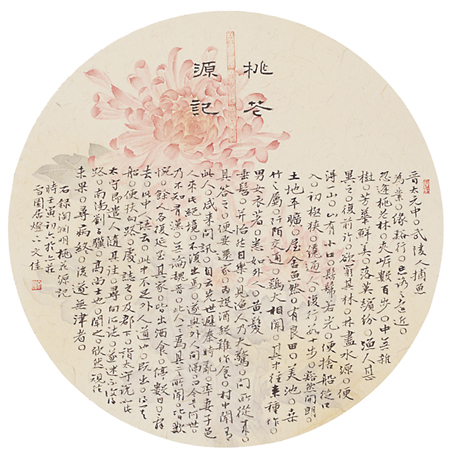 桃花
源記
晉太元中。武陵人捕魚
為業。緣谿行。忘路之遠近。
忽逢桃花林。夾岸數百步。中無雜
樹。芳華鮮美。落英繽紛。漁人甚
異之。復前行。欲窮其林。林盡水源。便
得一山。山有小口。髣髴若有光。便捨船從口
入。初極狹。纔通人。復行數十步。豁然開朗。
土地平曠。屋舍儼然。有良田。美池。桑
竹之屬。阡陌交通。雞犬相聞。其中往來種作。
男女衣著。悉如外人。黃髮
垂髫。並怡然自樂。見漁人乃大驚。問所從來。
具答之。便要還家。為設酒殺雞作食。村中聞有
此人。咸來問訊。自云先世避秦時亂。率妻子邑
人來此絕境。不復出焉。遂與外人間隔。問今是何世。
乃不知有漢。無論魏晉。此人一一為具言所聞。皆歎
惋。餘人各復延至其家。皆出酒食。停數日。辭
去。此中人語云。不足為外人道也。既出。得其
船。便扶向路。處處誌之。及郡下。詣太守說如此。
太守即遣人隨其往。尋向所誌。遂迷不復得
路。南陽劉子驥。高尚士也。聞之。欣然規往。
未果。尋病終。後遂無問津者。
右錄陶淵明桃花源記
時壬寅初六於
居燈下文佳